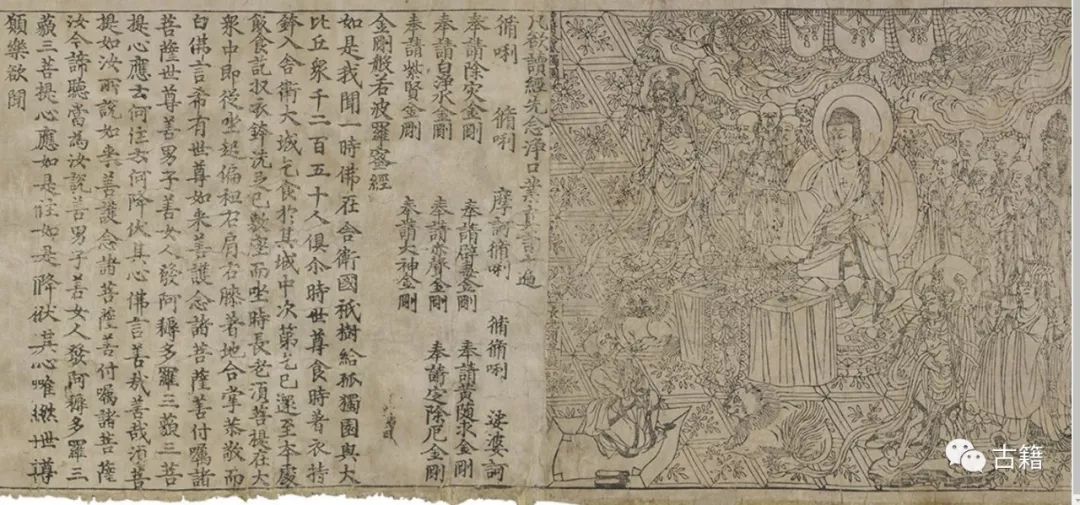 凡欲讀經先念淨口業真言一遍
脩唎 脩唎 摩訶脩唎 脩脩唎 娑婆訶
奉請除灾金剛 奉請辟毒金剛 奉請黃隨求金剛
奉請白淨水金剛 奉請赤聲金剛 奉請定除厄金剛
奉請紫賢金剛 奉請大神金剛
金剛般若波羅蜜經
如是我聞一時佛在舍衛國祇樹給孤獨園與大
比丘衆千二百五十人俱尒時世尊食時著衣持
鉢入舍衛大城乞食於其城中次第乞已還至本處
飯食訖收衣鉢洗足已敷座而坐時長老須菩提在大
衆中即從坐起偏袒右肩右膝著地合掌恭敬而
白佛言希有世尊如来善護念諸菩薩善付囑諸
菩薩世尊善男子善女人發阿耨多羅三藐三菩
提心應云何住云何降伏其心佛言善哉善哉須菩
提如汝所說如来善護念諸菩薩善付囑諸菩薩
汝今諦聽當為汝說善男子善女人發阿耨多羅三
藐三菩提心應如是住如是降伏其心唯然世尊
願樂欲聞
古籍